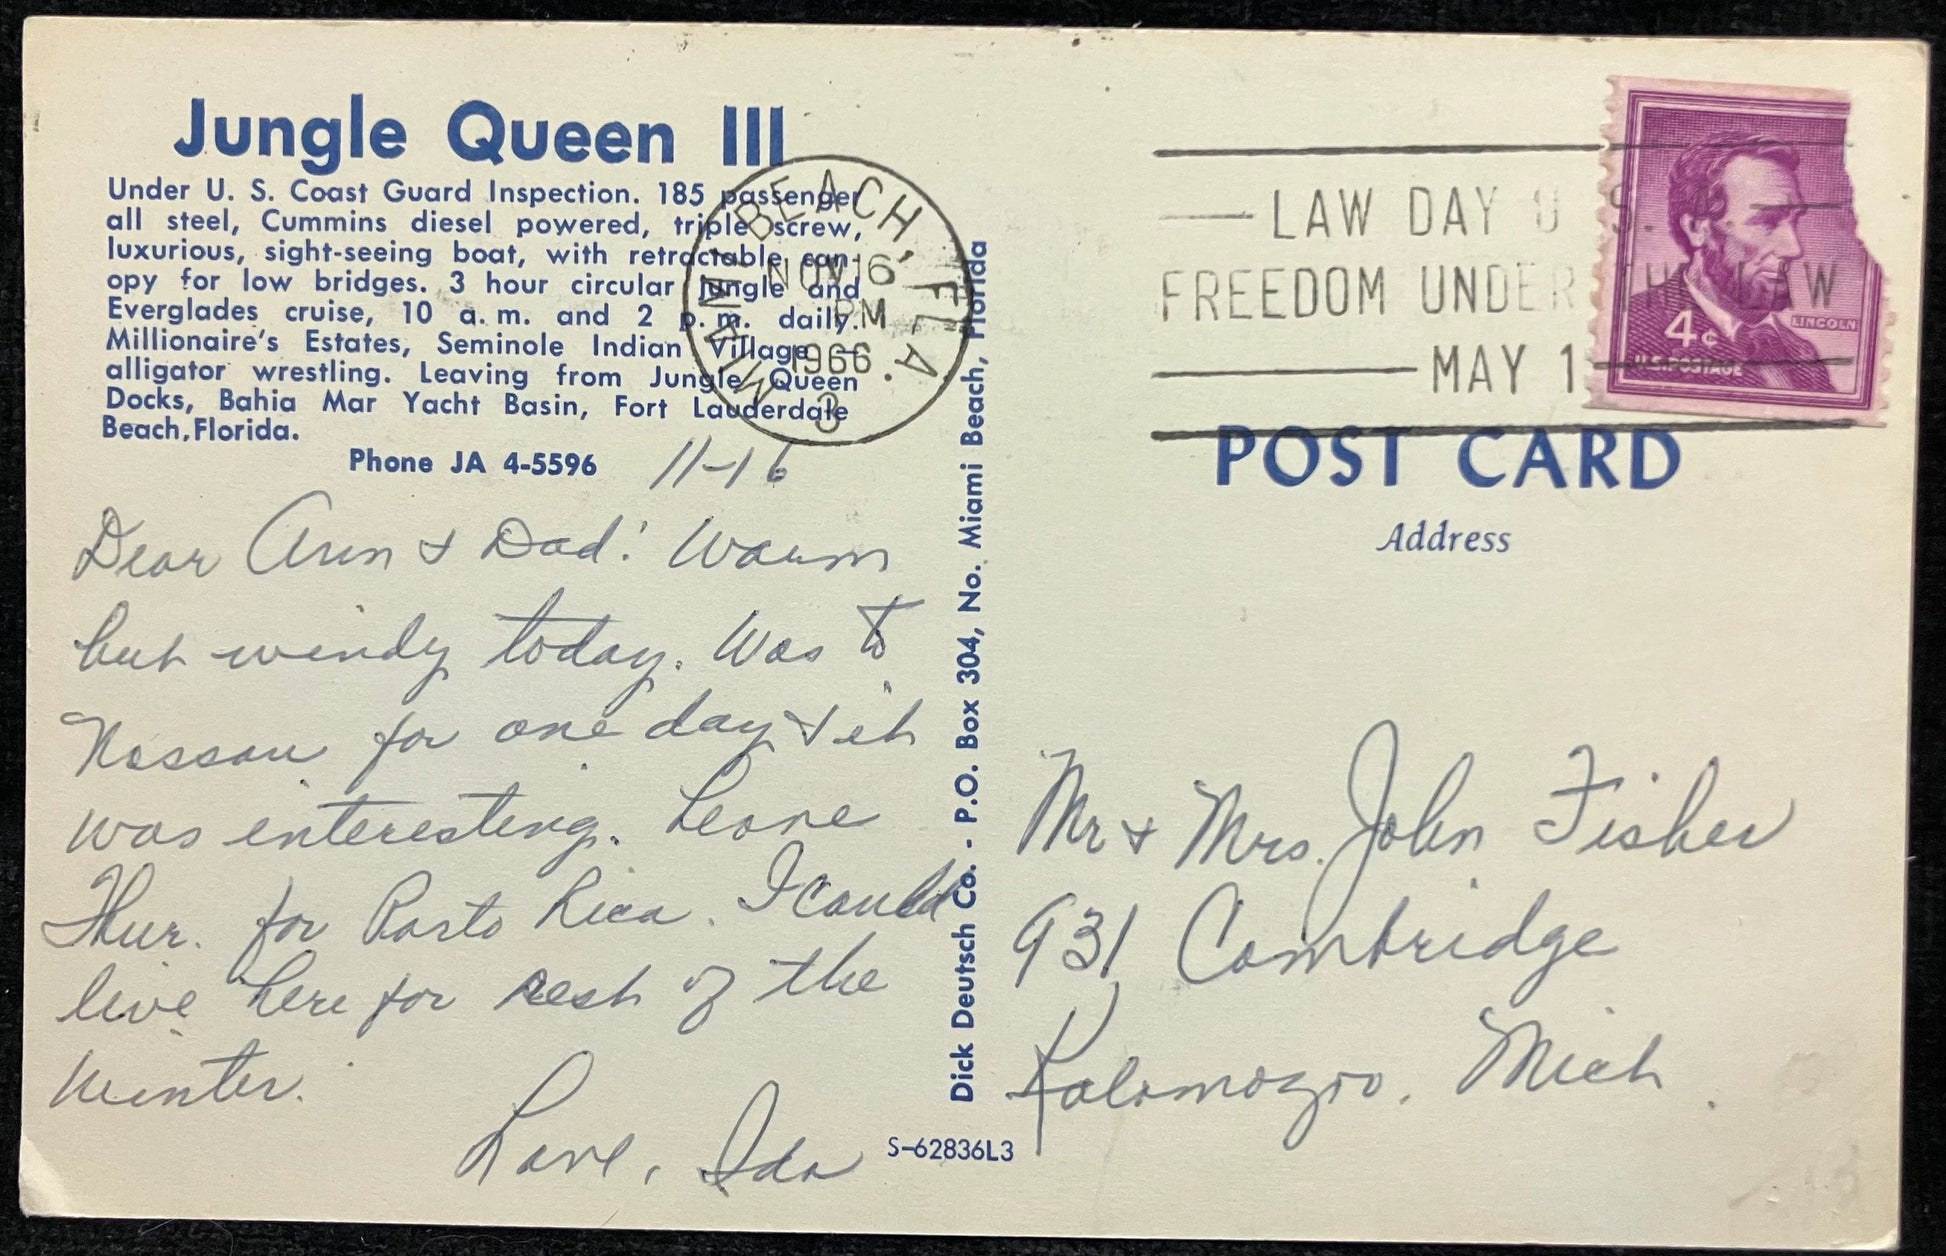 Jungle Queen III
Under U. S. Coast Guard Inspection. 185 passenger
all steel, Cummins diesel powered, triple screw,
luxurious, sight-seeing boat, with retractable can-
opy for low bridges. 3 hour circular jungle and
Everglades cruise, 10 a. m. and 2 p. m. daily.
Millionaire's Estates, Seminole Indian Village –
alligator wrestling. Leaving from Jungle Queen
Docks, Bahia Mar Yacht Basin, Fort Lauderdale
Beach, Florida.
Phone JA 4-5596
11-16
Dear Ann & Dad! Warm
but windy today. Was to
Nassau for one day & it
was interesting. Leave
Thur. for Porto Rica. I could
live here for rest of the
winter.
Love, Ida
S-62836L3
Dick Deutsch Co. - P.O. Box 304, No. Miami Beach, Florida
MIAMI BEACH, FLA.
NOV 16
PM
1966
3
LAW DAY U.S.
FREEDOM UNDER THE LAW
MAY 1
4¢
LINCOLN
U.S. POSTAGE
POST CARD
Address
Mr & Mrs. John Fisher
931 Cambridge
Kalamazoo, Mich.